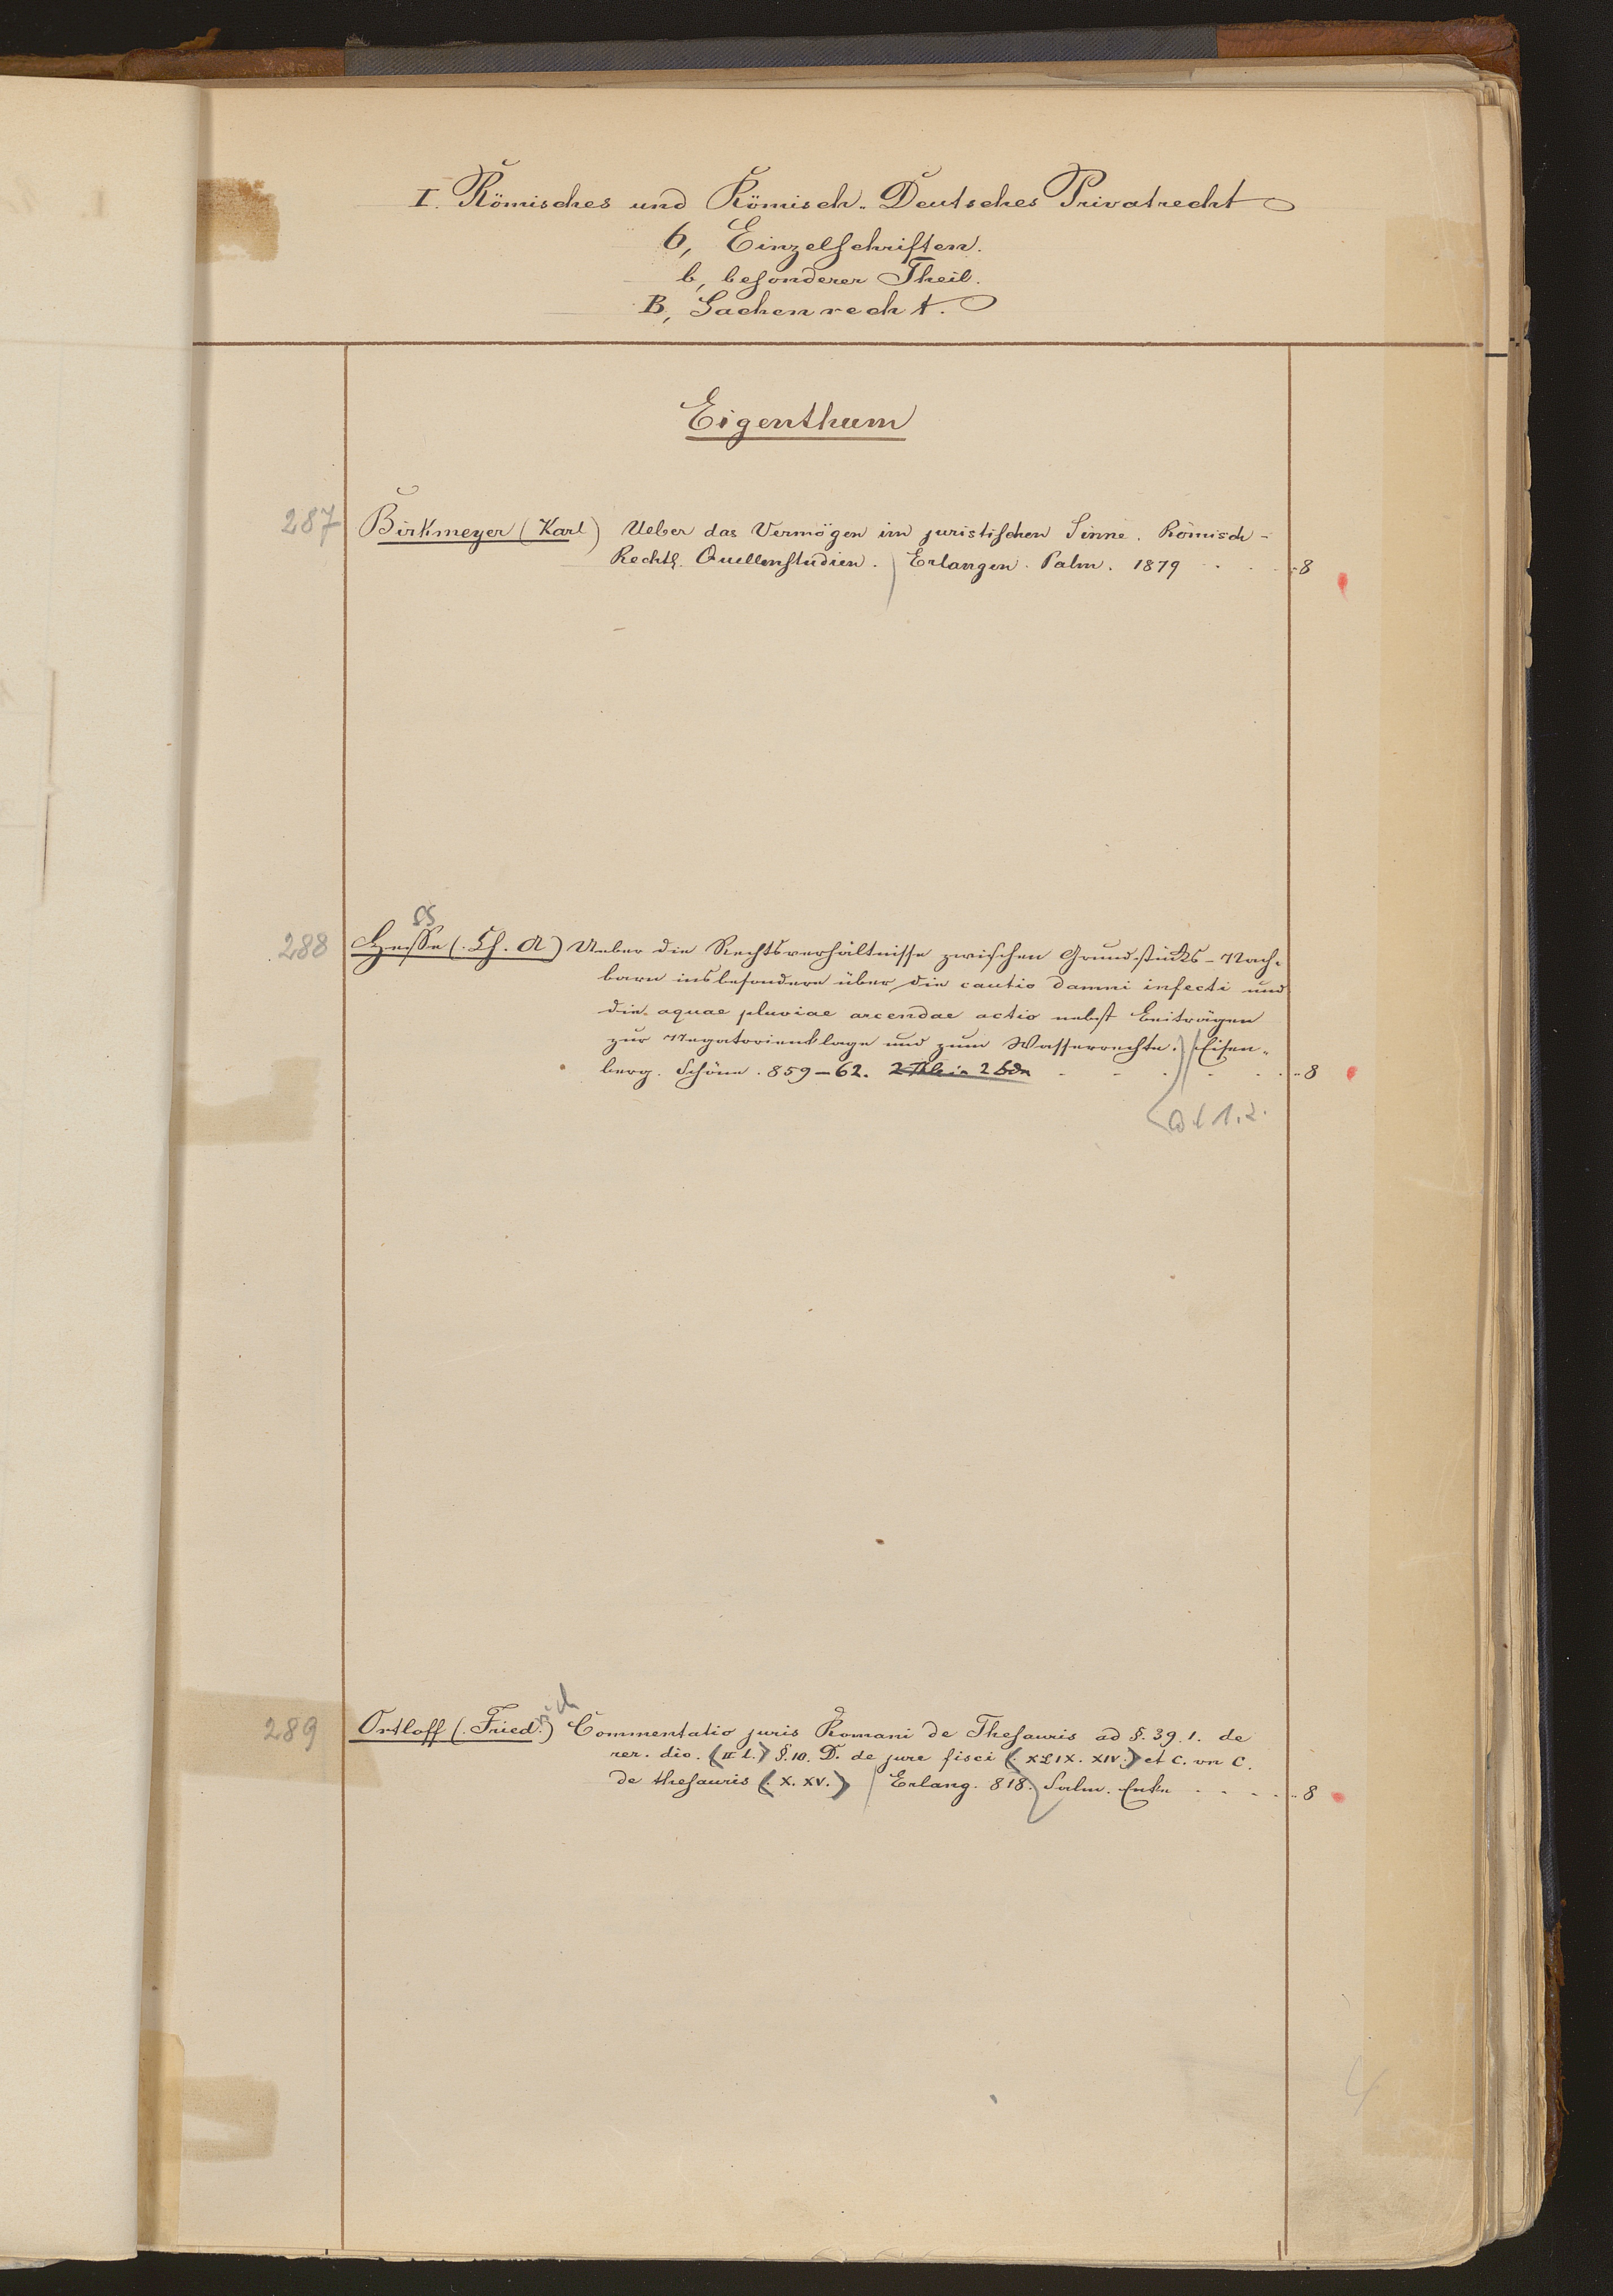 I. Römisches und Römisch-Deutsches Privatrecht
6, Einzelschriften.
b, besonderer Theil.
B, Sachenrecht.
Eigenthum
287 Birkmeyer (Karl) Ueber das Vermögen im juristischen Sinne. Römisch-
Rechtl. Quellenstudien. Erlangen. Palm. 1879 . . . . 8
ss
288 Hesse (. Ch. A) Ueber die Rechtsverhältnisse zwischen Grundstücks-Nach-
barn insbesondere über die cautio damni infecti und
die aquae pluviae arcendae actio nebst Beiträgen
zur Negatorienklage und zum Wasserrechte. Eisen-
berg. Schöne. 859-62. 2 Thle in 2 Bdn . . . . . . 8
Bd 1.2.
rich
289 Ortloff (. Fried.) Commentatio juris Romani de Thesauris ad §. 39. 1. de
rer. div. (II. 1.) §. 10. D. de jure fisci (. XLIX. XIV.) et C. un C.
de thesauris (. X. XV.) Erlang. 818. Palm. Enke . . . . . 8
4